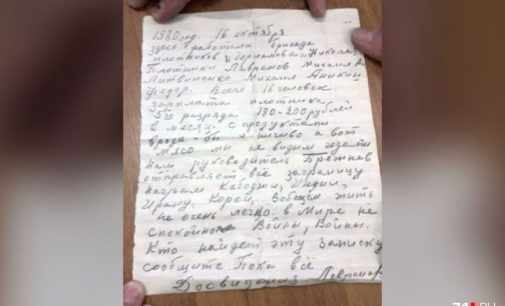 1980 год. 16 октября
здесь работала бригада
плотников
Плотники Лавренов Михаил
Литвиненко Михаил Аникин
Федор. Всего 16 человек
зарплата плотника
5го разряда 180-200 рублей
в месяц с продуктами
вроде-бы и ничиво а вот
мясо мы не видим годами
Наш руководитель Брежнев
отправляет всё заграницу
неграм Кабоджи, Индии,
Ирану, Кореи, Вобщем жить
не очень легко. в Мире не
спокойно Войны, Войны.
Кто найдет эту записку
сообщите Пока всё
Досвидания